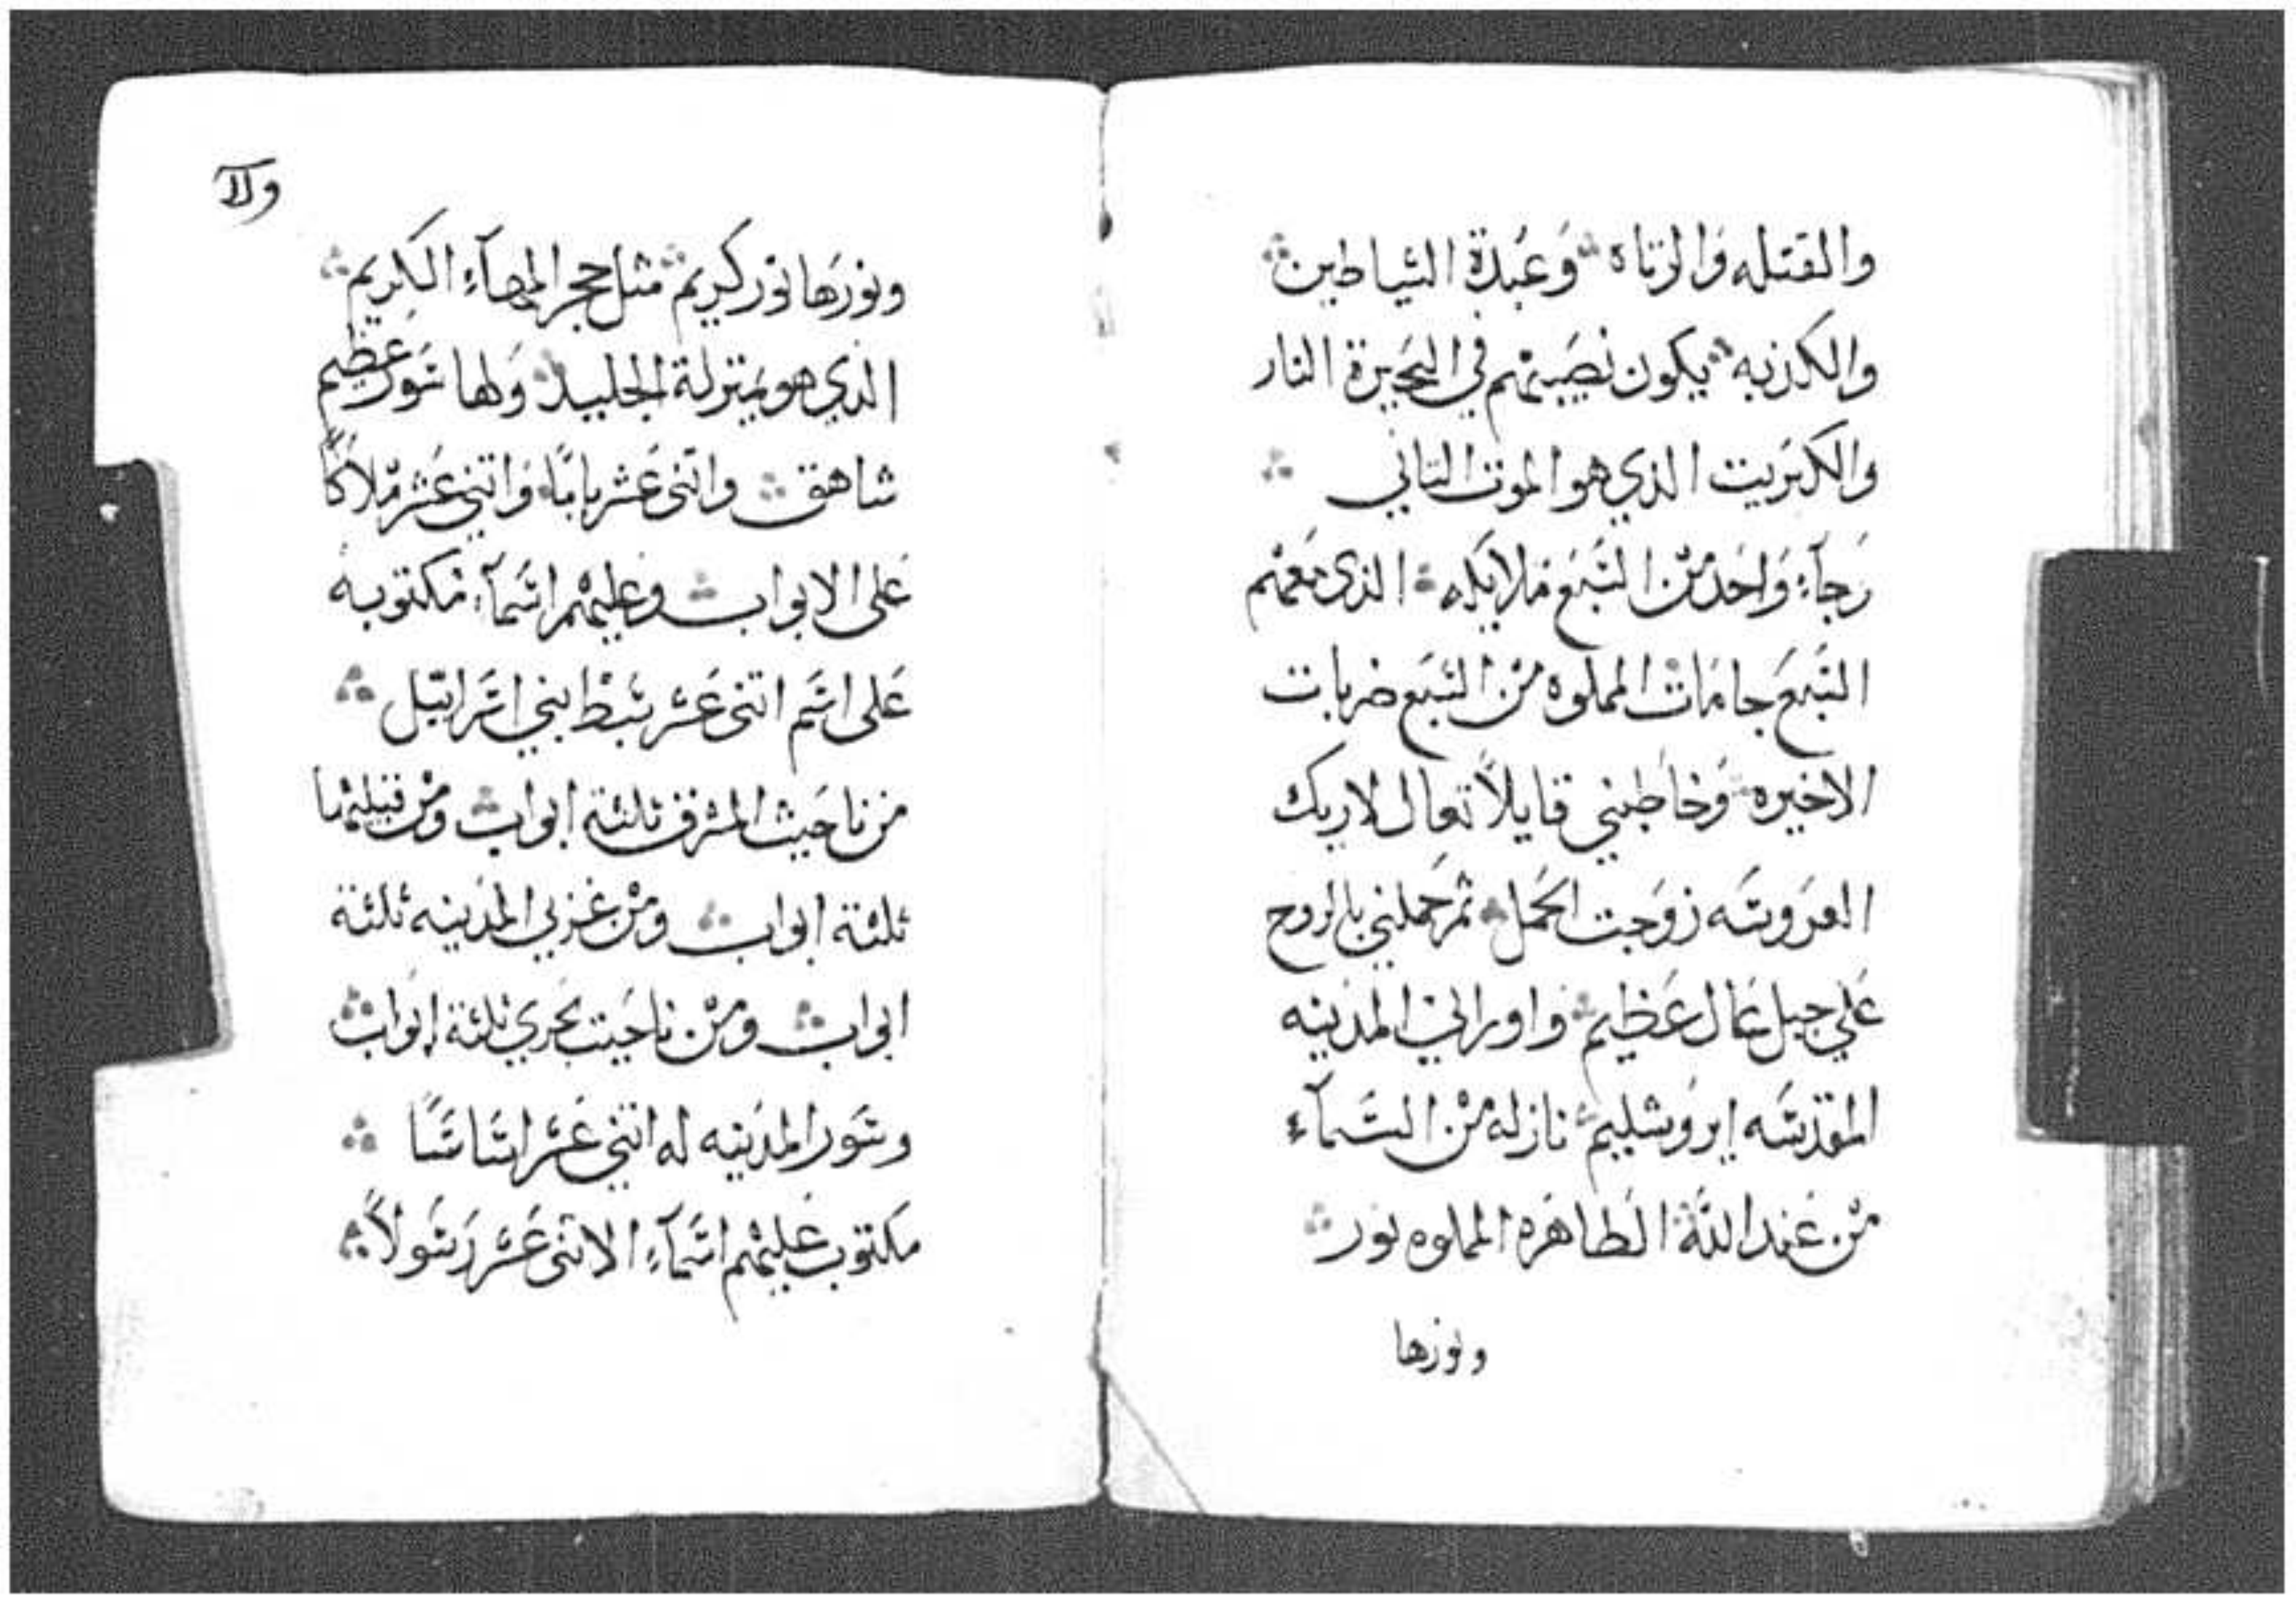 والقتله والزناه وعبدة الشياطين
والكذبه يكون نصيبهم في البحيرة النار
والكبريت الذي هو الموت الثاني
وجآء واحد من السبع ملايكه الذي معهم
السبع جامات المملوه من السبع ضربات
الاخيره وخاطبني قايلاً تعال لاريك
العروسه زوجت الحمل ثم حملني بالروح
على جبل عال عظيم واوراني المدينه
المقدسه ايروشليم نازله من السمآء
من عند الله الطاهره المملوه نور
ونورها
ونورها نور كريم مثل حجر المهآء الكريم
الذي هو بمنزلة الجليد ولها سور عظيم
شاهق واثنى عشر بابًا واثني عشر ملاكًا
على الابواب وعليهم اسمآء مكتوبه
على اسم اثنى عشر سبط بني اسرائيل
من ناحيت المشرق ثلثة ابواب ومن قبليها
ثلثة ابواب ومن غربي المدينه ثلثة
ابواب ومن ناحيت بحري ثلثة ابواب
وسور المدينه له اثني عشر اساسًا
مكتوب عليهم اسمآء الاثنى عشر رسولاً